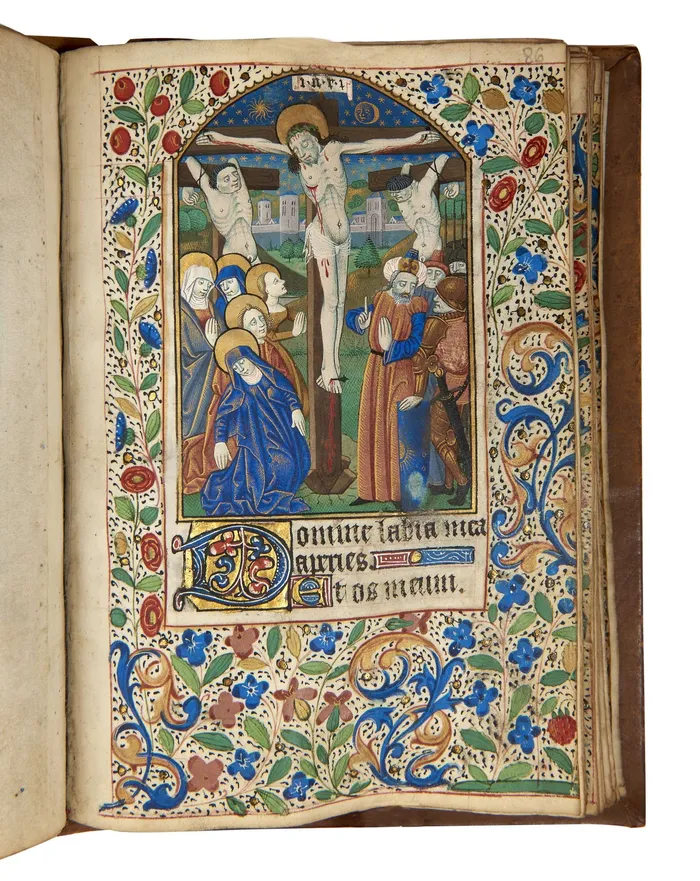 86
I·N·R·I
Domine labia mea
aperies.
Et os meum.